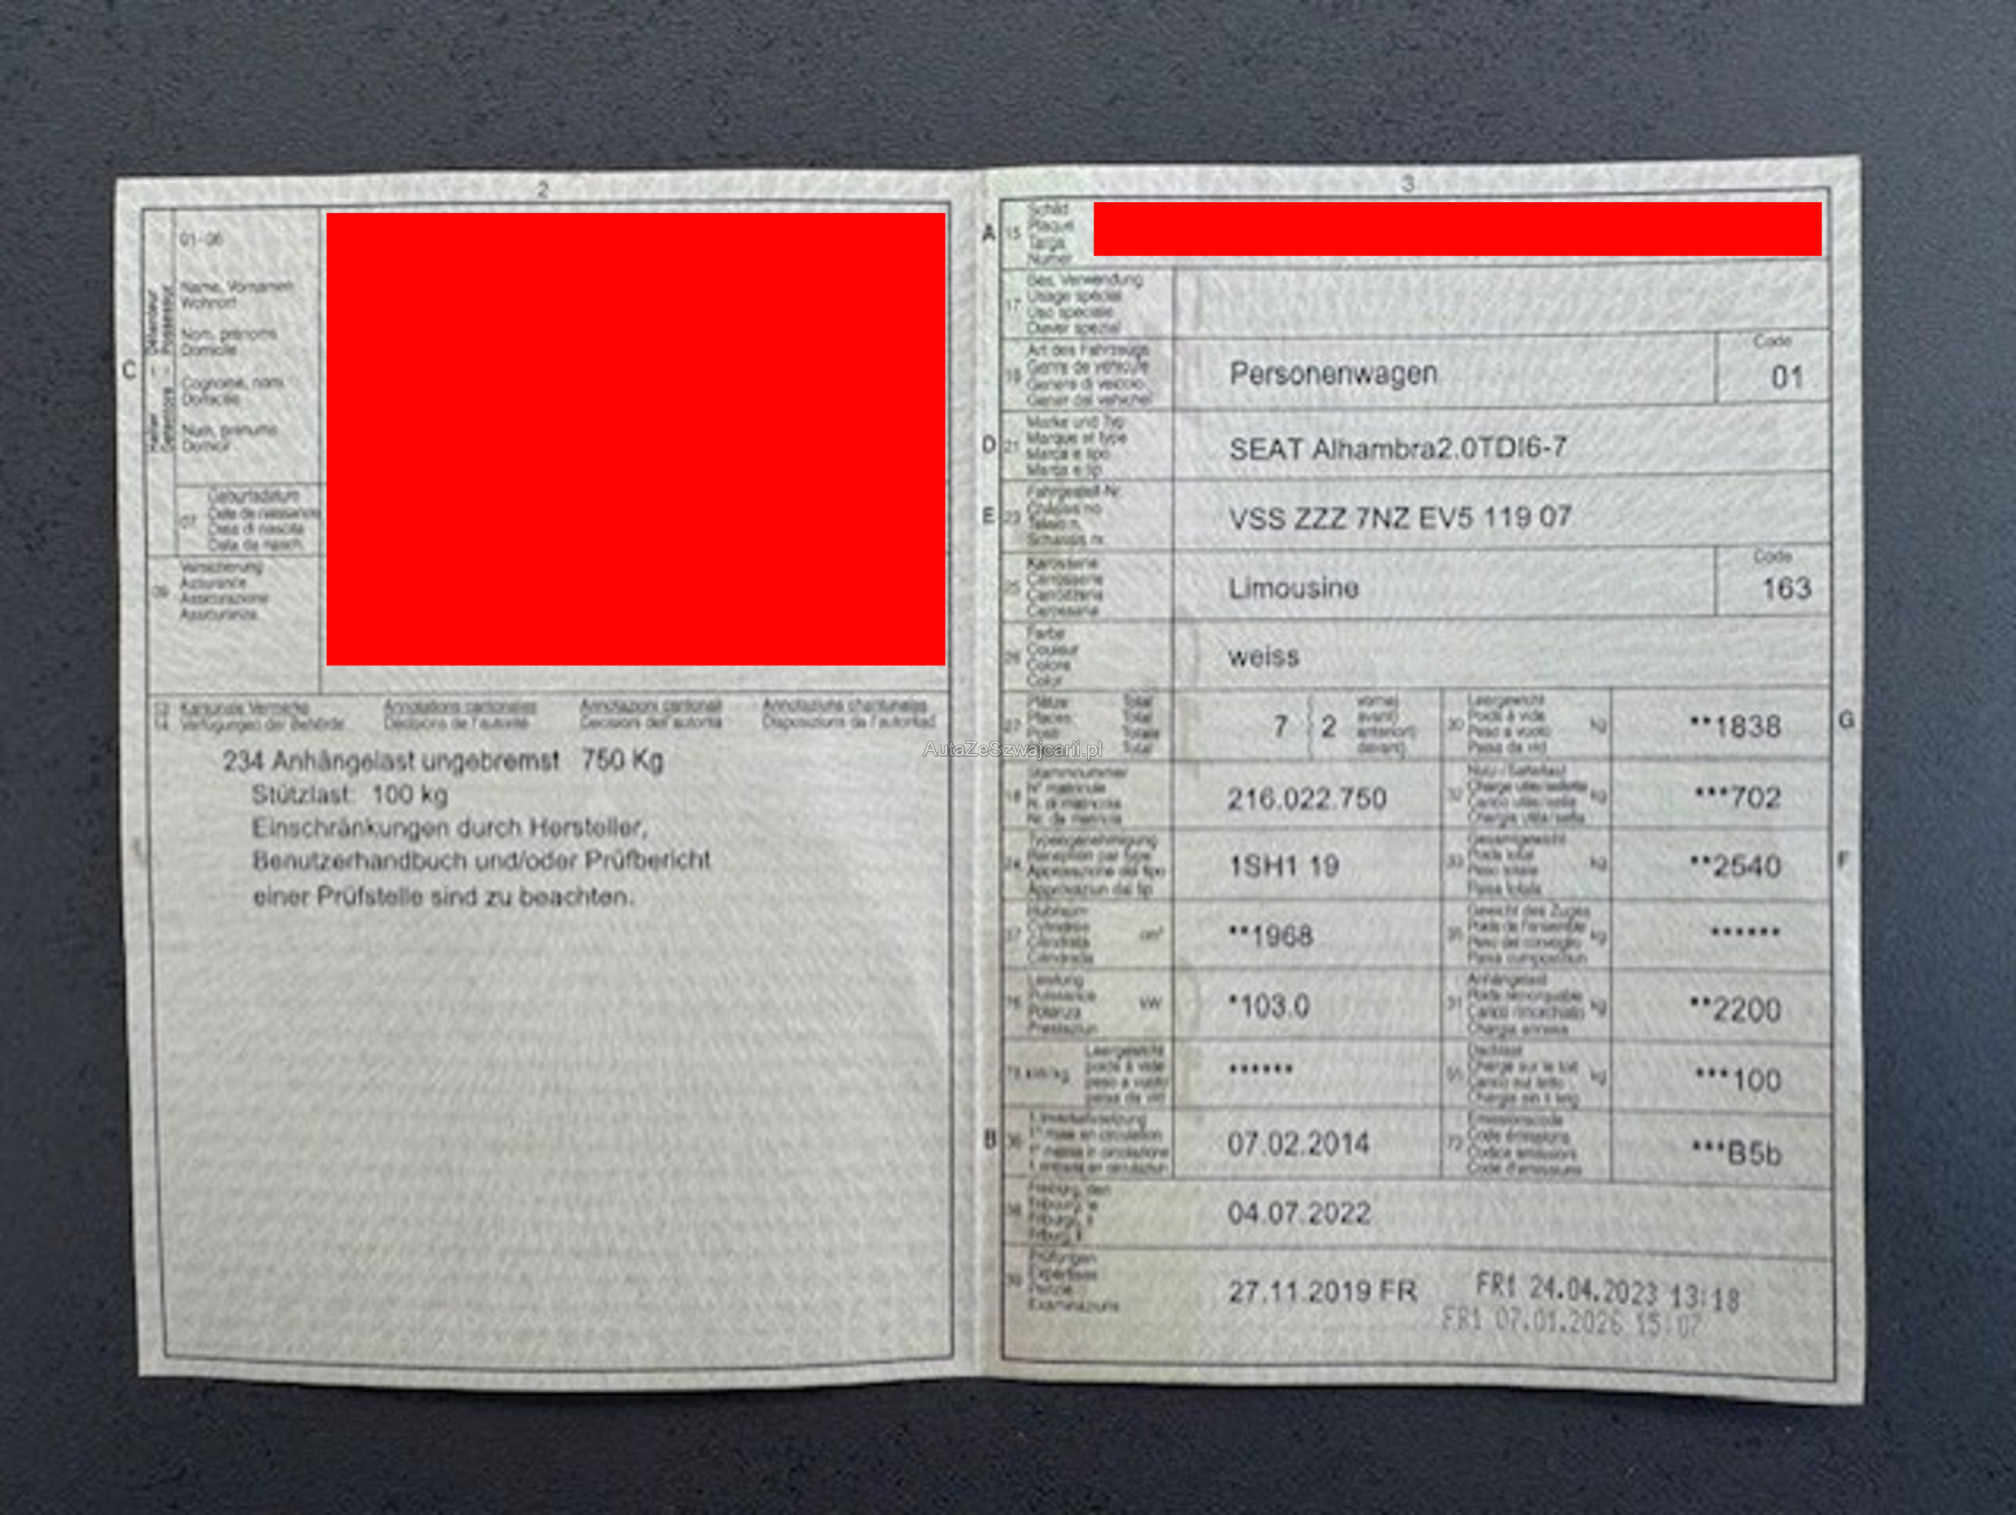 2
01-06
Name, Vornamen
Wohnort
Nom, prénoms
Domicile
Cognome, nomi
Domicilio
Num, prenums
Domicil
C
07
Geburtsdatum
Date de naissance
Data di nascita
Data da nasch.
09
Versicherung
Assurance
Assicurazione
Assicuranza
13 Kantonale Vermerke Annotations cantonales Annotazioni cantonali Annotaziuns chantunalas
14 Verfügungen der Behörde Décisions de l'autorité Decisioni dell'autorità Disposiziuns da l'autoritad
234 Anhängelast ungebremst 750 Kg
Stützlast: 100 kg
Einschränkungen durch Hersteller,
Benutzerhandbuch und/oder Prüfbericht
einer Prüfstelle sind zu beachten.
AutaZeSzwajcarii.pl
3
A 15
Schild
Plaque
Targa
Numer
17
Bes. Verwendung
Usage spécial
Uso speciale
Diever spezial
19
Art des Fahrzeugs
Genre de véhicule
Genere di veicolo
Gener dal vehichel
Personenwagen
Code
01
D 21
Marke und Typ
Marque et type
Marca e tipo
Marca e tip
SEAT Alhambra2.0TDI6-7
E 23
Fahrgestell-Nr.
Châssis no
Telaio n.
Schassis nr.
VSS ZZZ 7NZ EV5 119 07
25
Karosserie
Carrosserie
Carrozzeria
Carossaria
Limousine
Code
163
26
Farbe
Couleur
Colore
Colur
weiss
27
Plätze Total
Places: Total
Posti Totale
Total
7 2
vorne)
avant)
anteriori)
davant)
30
Leergewicht
Poids à vide
Peso a vuoto
Paisa da vid
kg
**1838
G
18
Stammnummer
N° matricule
N. di matricola
Nr. da matricla
216.022.750
32
Nutz-/Sattellast
kg
***702
24
Typengenehmigung
Réception par type
Approvazione del tipo
Approvaziun dal tip
1SH1 19
33
Gesamtgewicht
Poids total
Peso totale
Paisa totala
kg
**2540
F
37
Hubraum
Cylindrée
Cilindrata
Cilindrada
cm³
**1968
35
Gewicht des Zuges
Poids de l'ensemble
Peso del convoglio
Paisa cumposiziun
kg
******
76
Leistung
Puissance
Potenza
Prestaziun
kW
*103.0
31
Anhängelast
Poids remorquable
Carico rimorchiato
Chargia annexa
kg
**2200
78 kW/kg
Leergewicht
poids à vide
peso a vuoto
paisa da vid
******
55
Dachlast
Charge sur le toit
Carico sul tetto
Chargia sin il tetg
kg
***100
B 36
1. Inverkehrsetzung
1re mise en circulation
1a messa in circolazione
1. entrada en circulaziun
07.02.2014
72
Emissionscode
Code émissions
Codice emissioni
Code d'emissiuns
***B5b
38
Freiburg, den
Fribourg, le
Friburgo, il
Friburg, il
04.07.2022
39
Prüfungen
Expertises
Perizie
Examinaziuns
27.11.2019 FR
FR1 24.04.2023 13:18
FR1 07.01.2026 15:07